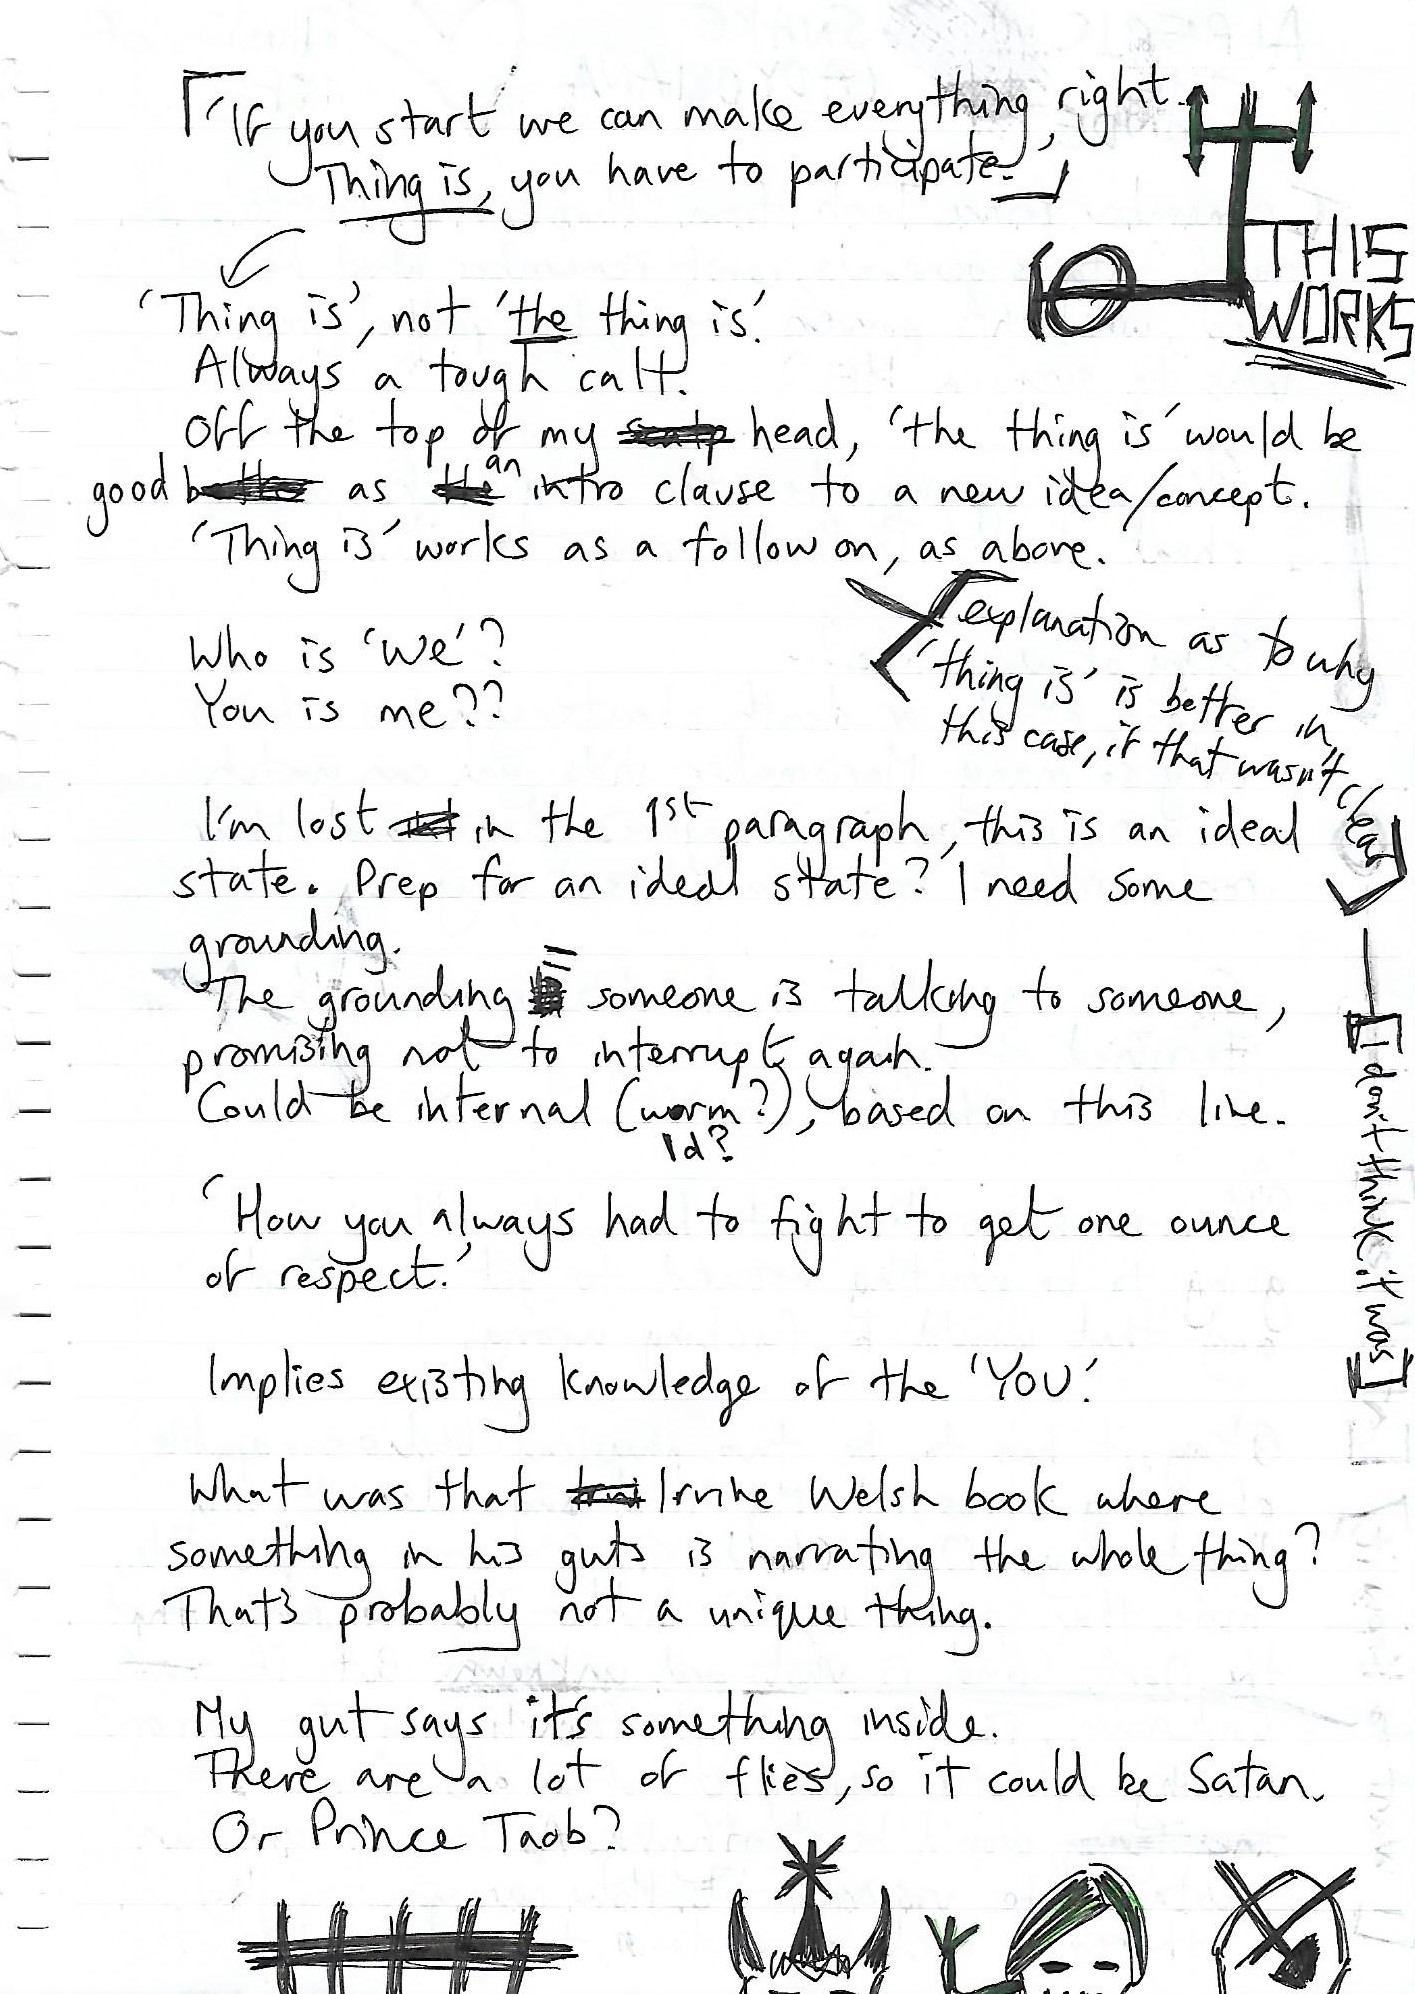 'If you start we can make everything right.
Thing is, you have to participate.'
THIS
WORKS
'Thing is', not 'the thing is'.
Always a tough call.
Off the top of my head, 'the thing is' would be
good as an intro clause to a new idea/concept.
'Thing is' works as a follow on, as above.
explanation as to why
'thing is' is better in
this case, if that wasn't clear
I don't think it was
Who is 'we'?
You is me??
I'm lost in the 1st paragraph, this is an ideal
state. Prep for an ideal state? I need some
grounding.
The grounding = someone is talking to someone,
promising not to interrupt again.
Could be internal (worm?), based on this line.
Id?
'How you always had to fight to get one ounce
of respect.'
Implies existing knowledge of the 'YOU'.
What was that Irvine Welsh book where
something in his guts is narrating the whole thing?
That's probably not a unique thing.
My gut says it's something inside.
There are a lot of flies, so it could be Satan.
Or Prince Taob?